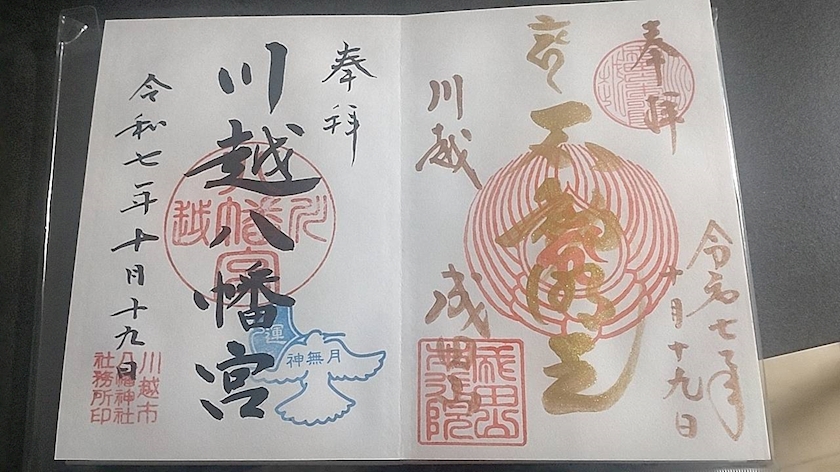 奉拝
不動明王
令和七年
十月十九日
川越
成田山
奉拝
川越八幡宮
令和七年十月十九日
運
神無月
川越市
八幡神社
社務所印